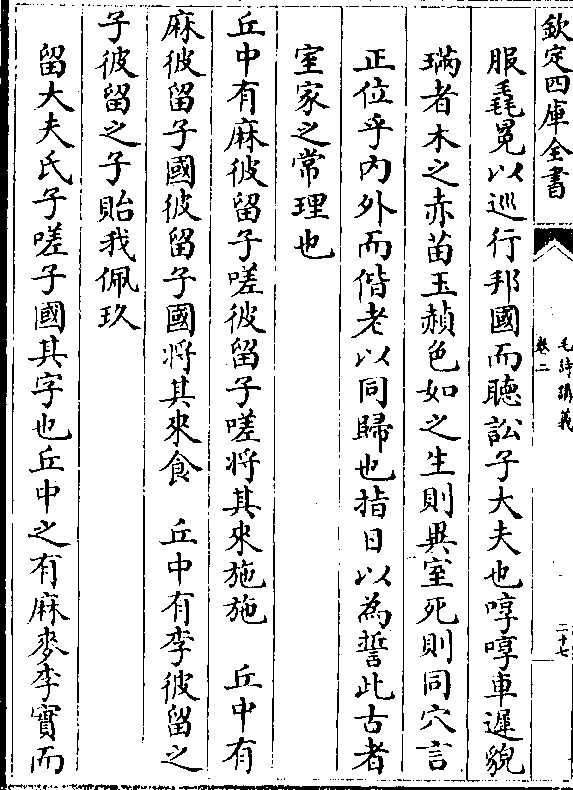 欽定四庫全書
毛詩講義
卷二
二十七
服毳冕以巡行邦國而聽訟子大夫也啍啍車遲貌
璊者木之赤苗玉赬色如之生則異室死則同穴言
正位乎內外而偕老以同歸也指日以為誓此古者
室家之常理也
丘中有麻彼留子嗟彼留子嗟將其來施施　丘中有
麻彼留子國彼留子國将其來食　丘中有李彼留之
子彼留之子貽我佩玖
留大夫氏子嗟子國其字也丘中之有麻麥李實而